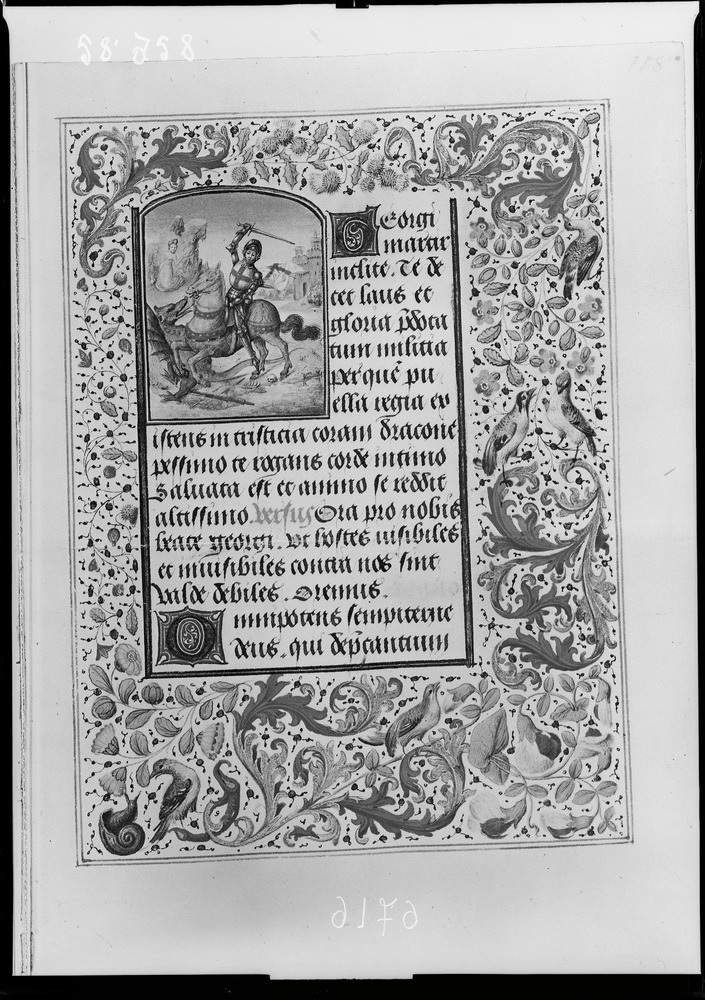 Georgi
martir
inclite. Te de
cet laus et
gloria p̄dota
tum militia
per quē pu
ella regia ex
istens in tristicia coram dracone
pessimo te rogans corde intimo
Saluata est et animo se reddit
altissimo. versus Ora pro nobis
beate georgi. Vt hostes uisibiles
et inuisibiles contra nos sint
valde debiles. Oremus.
Omnipotens sempiterne
deus. qui dep̄cantium